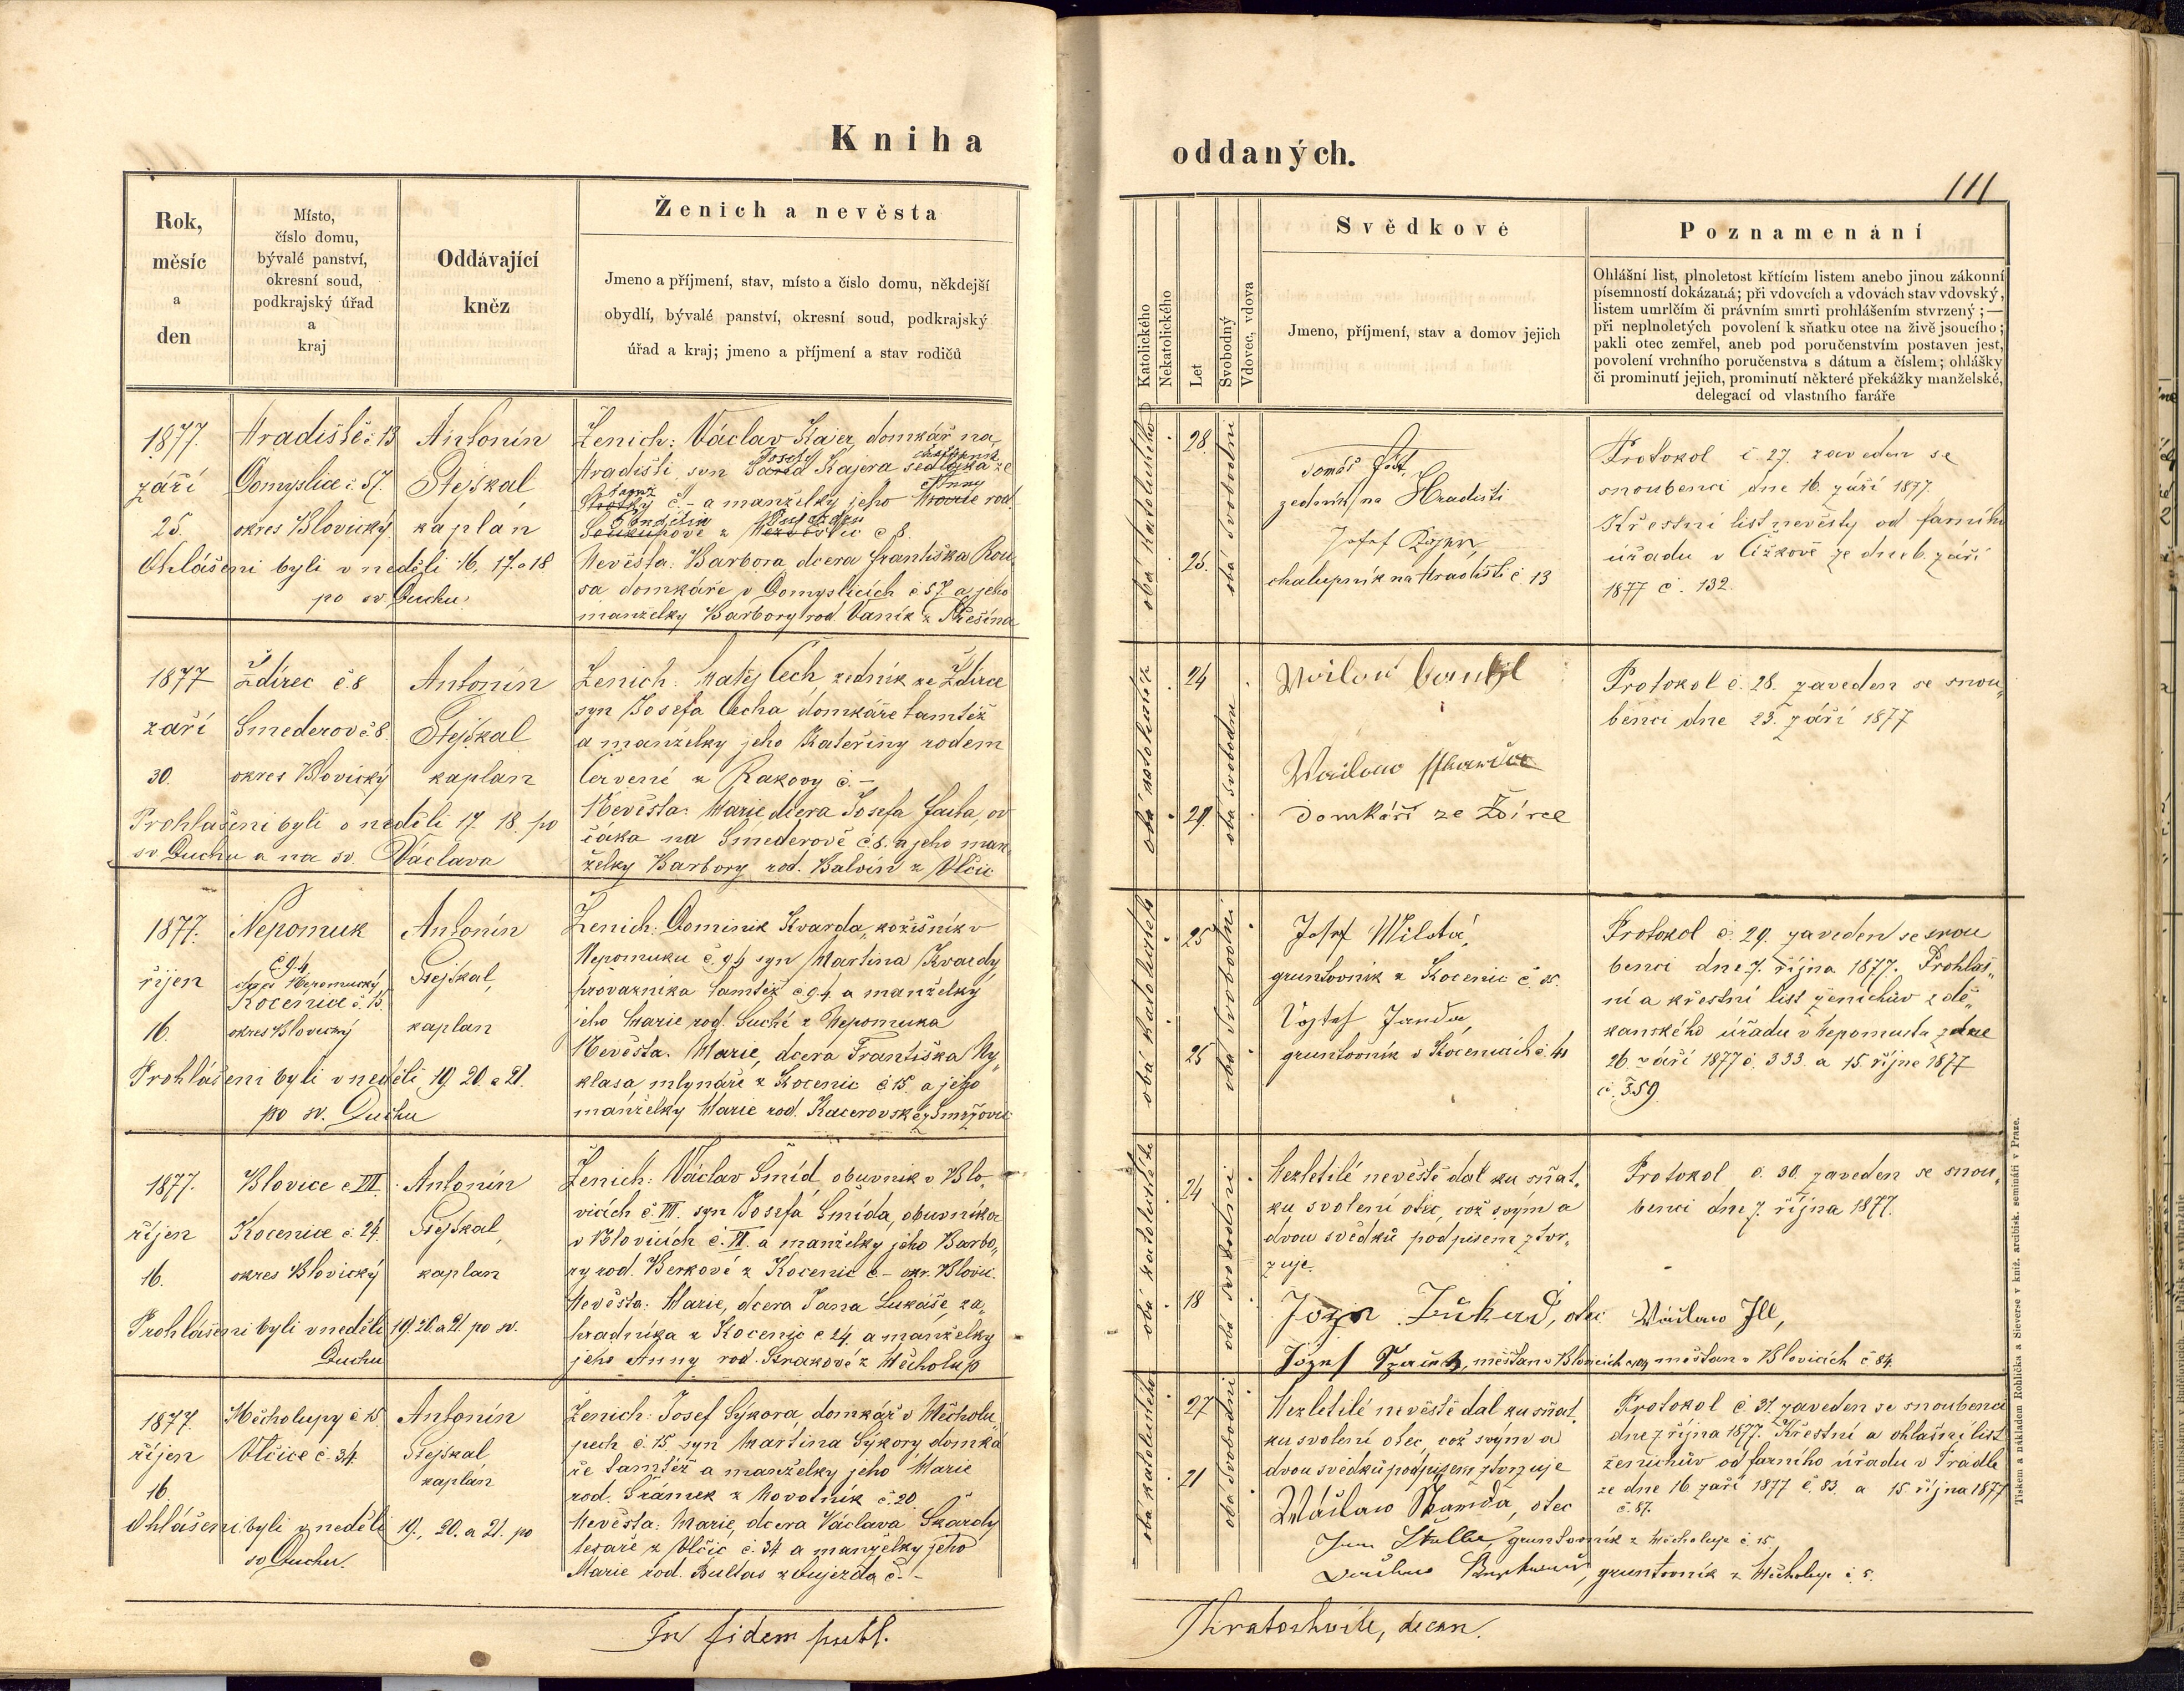 Kniha
oddaných.
111
Rok,
měsíc
a
den
Místo,
číslo domu,
bývalé panství,
okresní soud,
podkrajský úřad
a
kraj
Oddávající
kněz
Ženich a nevěsta
Jmeno a příjmení, stav, místo a čislo domu, někdejší
obydlí, bývalé panství, okresní soud, podkrajský
úřad a kraj; jmeno a příjmení a stav rodičů
Katolického
Nekatolického
Let
Svobodný
Vdovec, vdova
Svědkové
Jmeno, příjmení, stav a domov jejich
Poznamenání
Ohlášní list, plnoletost křtícím listem anebo jinou zákonní
písemností dokázaná; při vdovcích a vdovách stav vdovský,
listem umrlčím či právním smrti prohlášením stvrzený; —
při neplnoletých povolení k sňatku otce na živě jsoucího;
pakli otec zemřel, aneb pod poručenstvím postaven jest,
povolení vrchního poručenstva s dátum a číslem; ohlášky
či prominutí jejich, prominutí některé překážky manželské,
delegací od vlastního faráře
1877.
září
25.
Hradiště č. 13
Domyslice č. 57.
okres Blovický
Ohlášeni byli v neděli 16. 17. a 18
po sv. Duchu.
Antonín
Stejskal
kaplán
Ženich: Václav Kajer, domkář na
Hradišti, syn Josefa Kajera chalupníka ze
č. – a manželky jeho Anny rod.
č 8.
Nevěsta: Barbora, dcera Františka Rou-
sa domkáře v Domyslicích č 57 a jeho
manželky Barbory rod. Vaník z Přešína
obá katolického
28.
25.
Tomáš
zedník na Hradišti
Josef
chalupník na Hradišti č 13
Protokol č 27. zaveden se
snoubenci dne 16. září 1877.
Křestní list nevěsty od farního
úřadu v Čížkově ze dne 6. září
1877 č. 132.
1877
září
30.
Ždírec č. 8
Smederov č 8.
okres Blovický
Prohlašeni byli v neděli 17. 18. po
sv. Duchu a na sv. Václava
Antonín
Stejskal
kaplan
Ženich: Matěj Čech zedník ze Ždírce
syn Josefa Čecha domkáře tamtéž
a manželky jeho Kateřiny rodem
Červené z Rakovy č –
Nevěsta: Marie, dcera Josefa Faita, ov-
čáka na Smederově č 8. a jeho man-
želky Barbory rod. Balvín z Vlčic
24
29
domkáři ze Ždírce
Protokol č. 28. zaveden se snou-
benci dne 23. září 1877
1877.
říjen
16.
Nepomuk
č 94
okres Nepomucký,
Kocenice č. 15.
okres Blovický
Prohlášeni byli v neděli 19. 20. a 21.
po sv. Duchu
Antonín
Stejskal,
kaplan
Ženich: Dominik Kvarda, kožišník v
Nepomuku č. 94 syn Martina Kvardy
provazníka tamtéž č 94 a manželky
jeho Marie rod. Suché z Nepomuka
Nevěsta: Marie, dcera Františka Ny-
klasa mlynáře z Kocenic č 15. a jeho
manželky Marie rod. Kacerovské z Smržovic
25
25
Josef Milota,
gruntovník z Kocenic č.
Vojtěch Janda,
gruntovník v Kocenicích č.
Protokol č. 29. zaveden se snou
benci dne 7. října 1877. Prohláš-
ní a křestní list ženichův z dě-
kanského úřadu v Nepomuku z dne
26 září 1877 č. 333. a 15. října 1877
č. 359.
1877.
říjen
16.
Blovice č. III.
Kocenice č. 24.
okres Blovický
Prohlášeni byli v neděli 19. 20. a 21. po sv.
Duchu
Antonín
Stejskal,
kaplan
Ženich: Václav Šmíd, obuvník v Blo-
vicích č. III. syn Josefa Šmída, obuvníka
v Blovicích č. a manželky jeho Barbo-
ry rod. Berkové z Kocenic č. – okr. Blovic.
Nevěsta: Marie, dcera Jana Lukáše, za-
hradníka z Kocenic č 24. a manželky
jeho Anny rod. Strakové z Měcholup
24
18
Nezletilé nevěstě dal ku sňat-
ku svolení otec, což svým a
dvou svědků podpisem ztvr-
zuje.
Lukaš, otec
Josef měšťan v Blovicích
Protokol č. 30. zaveden se snou-
benci dne 7. října 1877.
Wáclaw Jll,
měšťan v Blovicích č 84.
1877.
říjen
16.
Měcholupy č 15
Vlčice č. 34.
Ohlášeni byli v neděli 19., 20. a 21. po
sv Duchu.
Antonín
Stejskal
kaplán
Ženich: Josef Sýkora, domkář v Měcholu-
pech č. 15. syn Martina Sýkory domká-
ře tamtéž a manželky jeho Marie
rod. Šrámek z Novotník č. 20.
Nevěsta: Marie, dcera Václava Škardy
tesaře z Vlčic č. 34 a manželky jeho
Marie rod. Bultas z Oujezda č. –
27
21
Nezletilé nevěstě dal ku sňat-
ku svolení otec, což svým a
dvou svědků podpisem ztvrzuje
Wáclaw Škarda, otec
gruntovník z Měcholup č. 15
gruntovník z Měcholup č. 5.
Protokol č 31. zaveden se snoubenci
dne 7 října 1877. Křestní a ohlašní list
ženichův od farního úřadu v Prádle
ze dne 16 září 1877 č. 83. a 15. října 1877
č. 87.
In fidem publ.
Kratochvile, decan.
Tiskem a nákladem Rohlíčka a Sieverse v kníž. arcibisk. semináři v Praze.